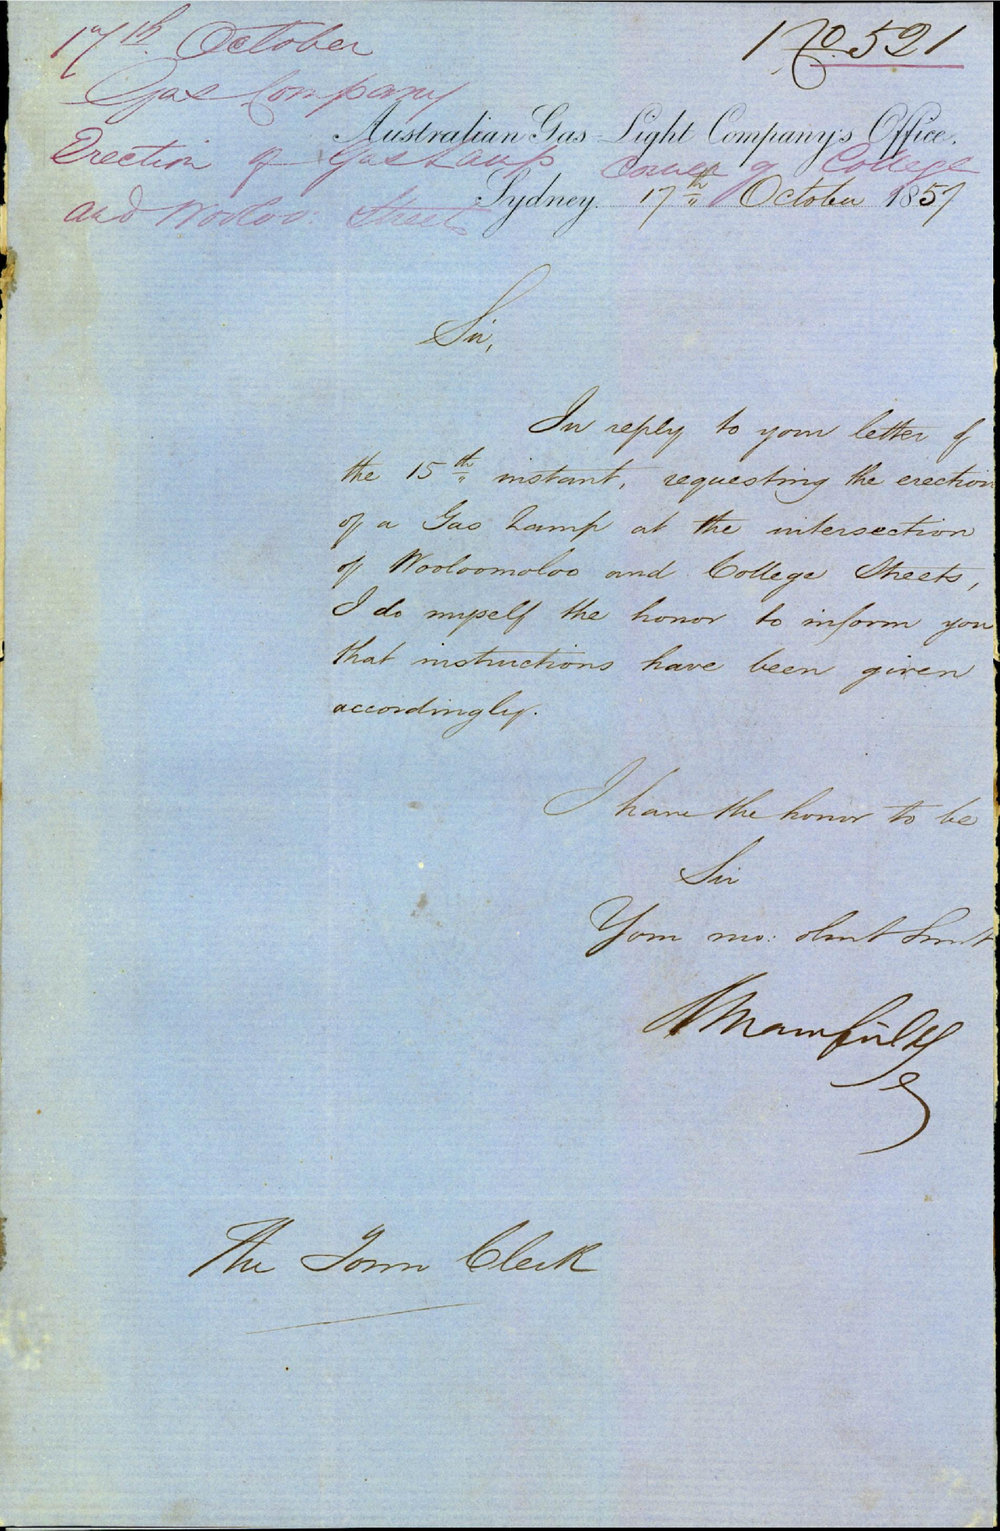 17th October
No 521
Gas Company
Australian Gas Light Company's Office,
Erection of Gas Lamp corner of College
Sydney 17th October 1857
and Wooloo: Streets
Sir,
In reply to your letter of
the 15th instant, requesting the erection
of a Gas Lamp at the intersection
of Wooloomoloo and College Streets,
I do myself the honor to inform you
that instructions have been given
accordingly.
I have the honor to be
Sir
Your mo: obnt Servt
The Town Clerk